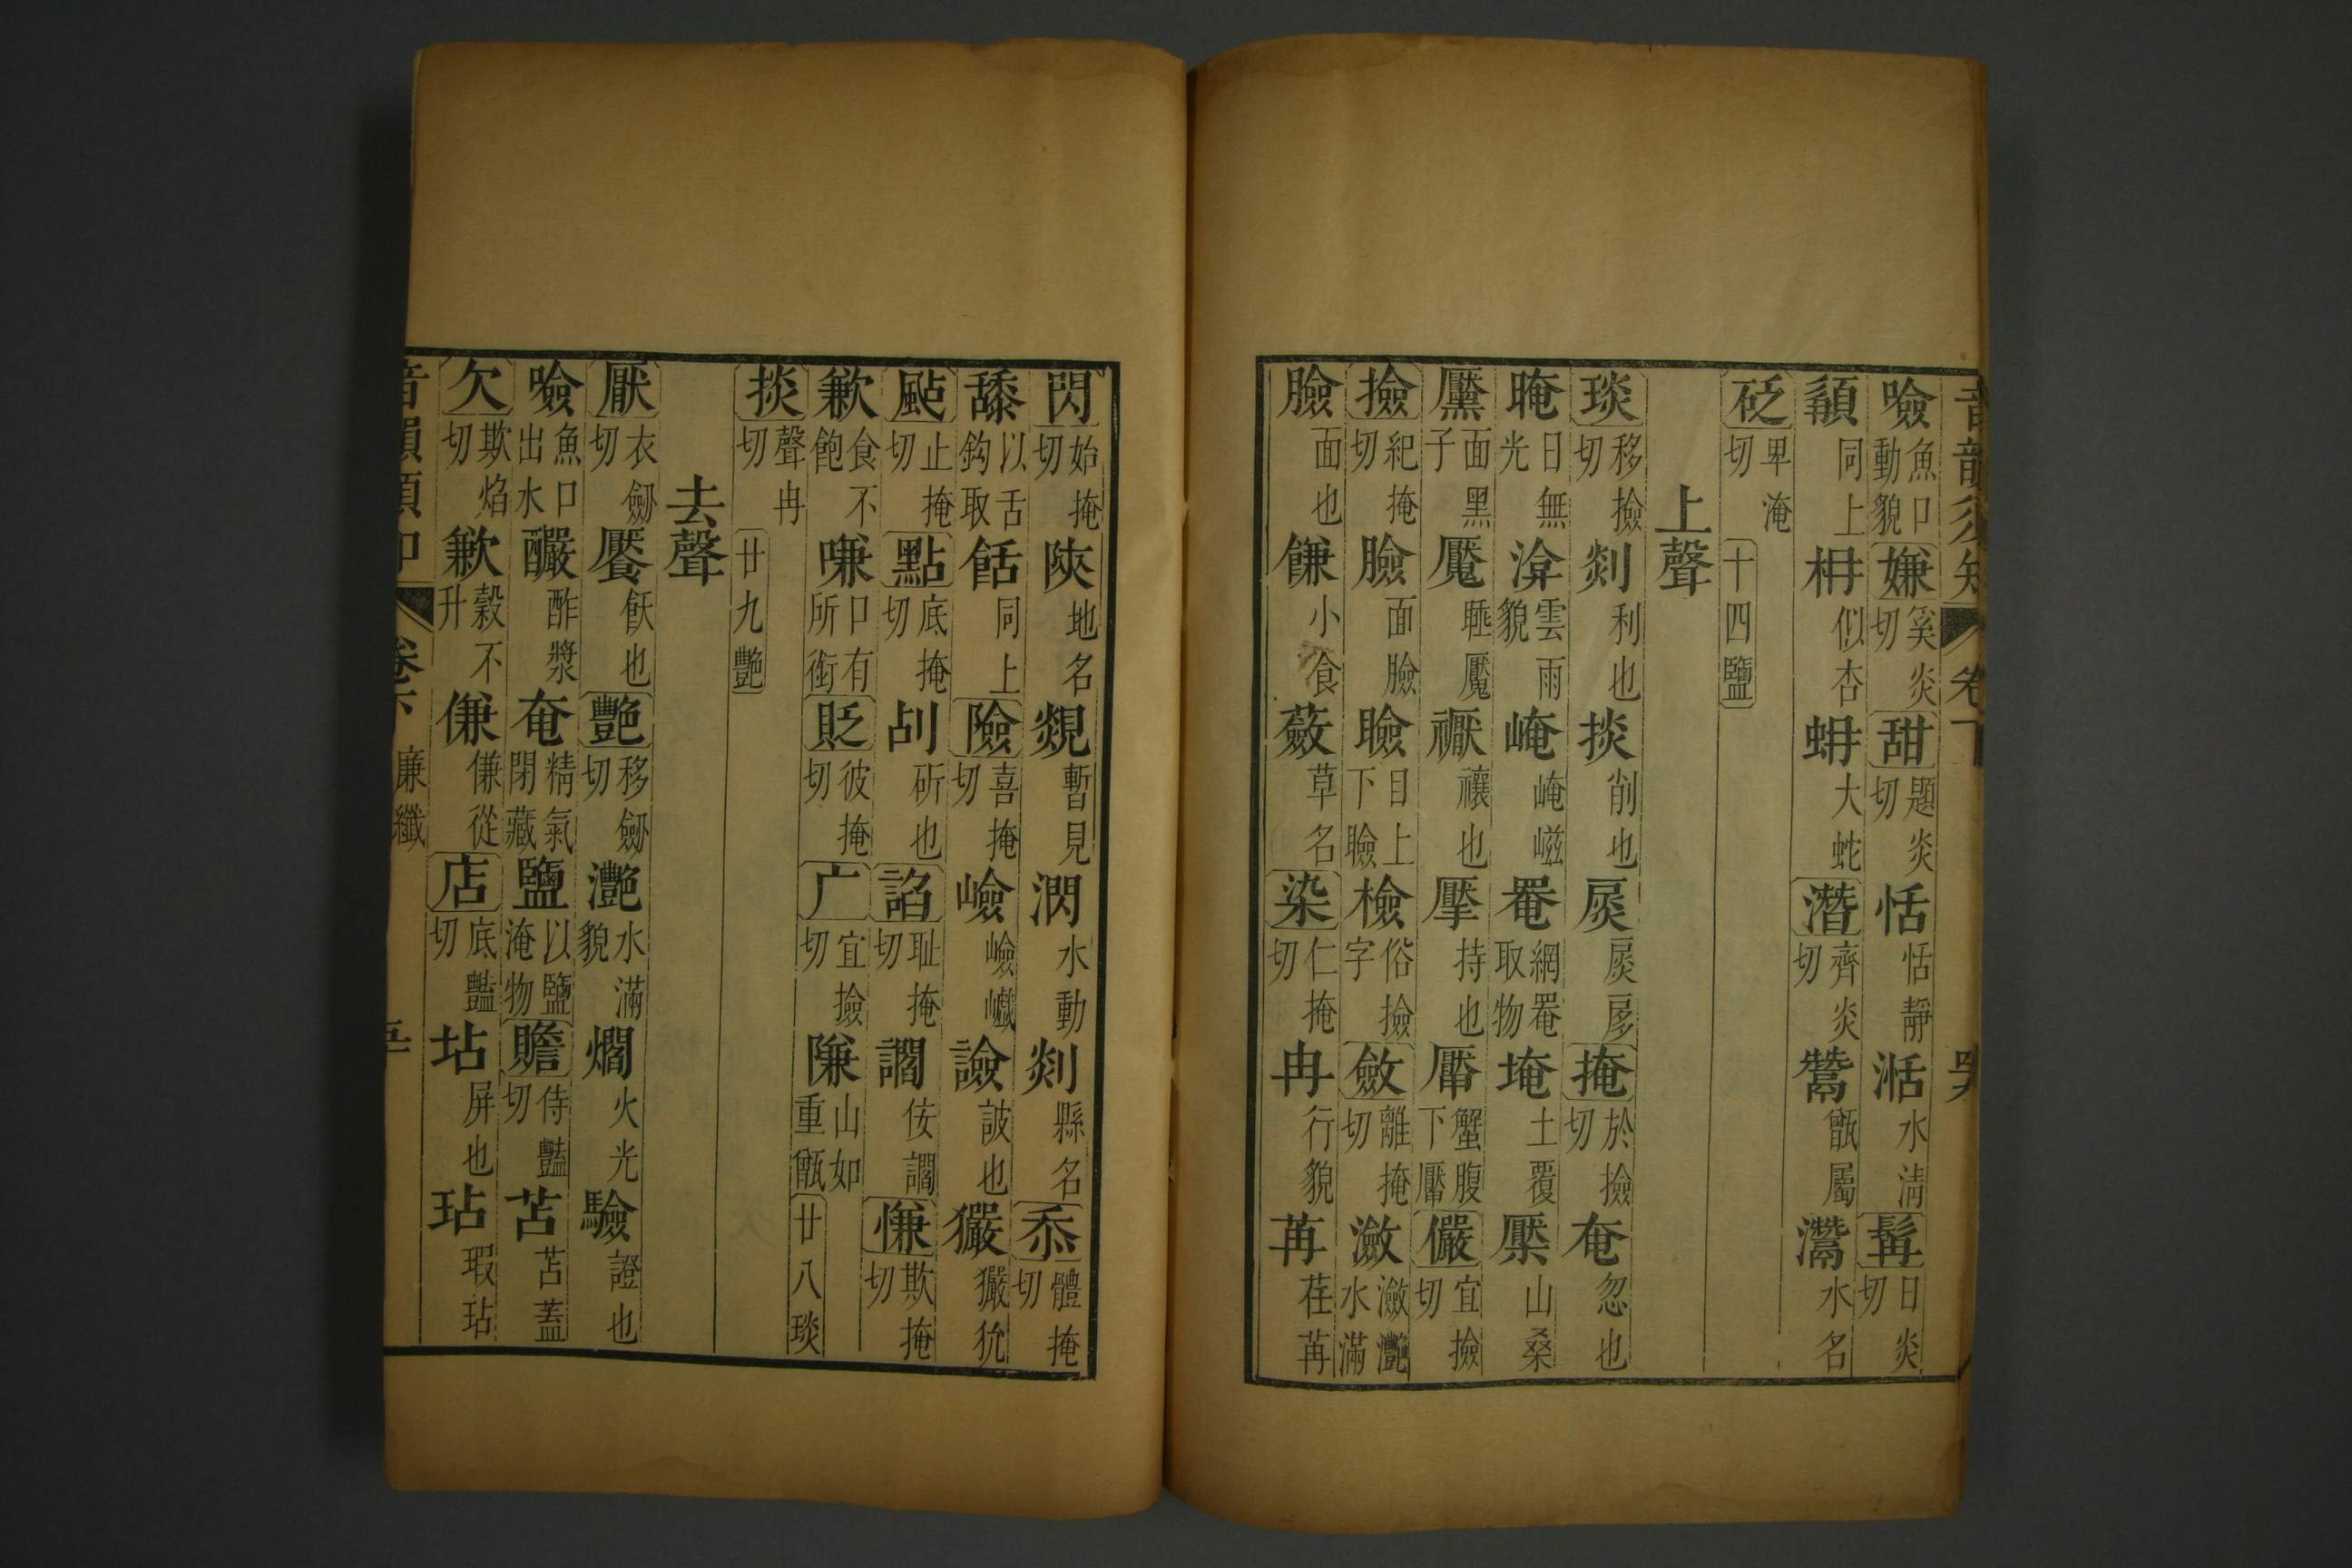 音韻須知 卷下
噞魚口動貌嫌奚炎切甜題炎切恬恬靜湉水淸髯日炎切
䫇同上枏似杏蚺大蛇潛齊炎切鬵甑屬灊水名
砭卑淹切十四鹽
上聲
琰移撿切剡利也掞削也扊扊扅掩於撿切奄忽也
晻日無光渰雲雨貌崦崦嵫罨網罨取物埯土覆檿山桑
黡面黑子魘睡魘禳也擪持也蟹腹下儼宜撿切
撿紀掩切臉面臉瞼目上下瞼檢俗撿字斂離掩切瀲瀲灩水滿
臉面也䭑小食蘞草名染仁掩切冉行貌苒荏苒
閃始掩切陝地名覢暫見水動剡縣名忝體掩切
舔以舌鈎取餂同上險喜掩切嶮嶮巇譣詖也玁玁狁
颭止掩切點底掩切㓠斫也諂耻掩切讇佞讇慊欺掩切
歉食不飽嗛口有所銜貶彼掩切广宜撿切隒山如重甑廿八琰
掞聲冉切廿九艷
去聲
厭衣劒切饜飫也艷移劒切灩水滿貌爓火光驗證也
噞魚口出水釅酢漿奄精氣閉藏鹽以鹽淹物贍侍豔切苫苫蓋
欠欺焰切歉穀不升傔傔從店底豔切坫屏也玷瑕玷
卷下 廉纖